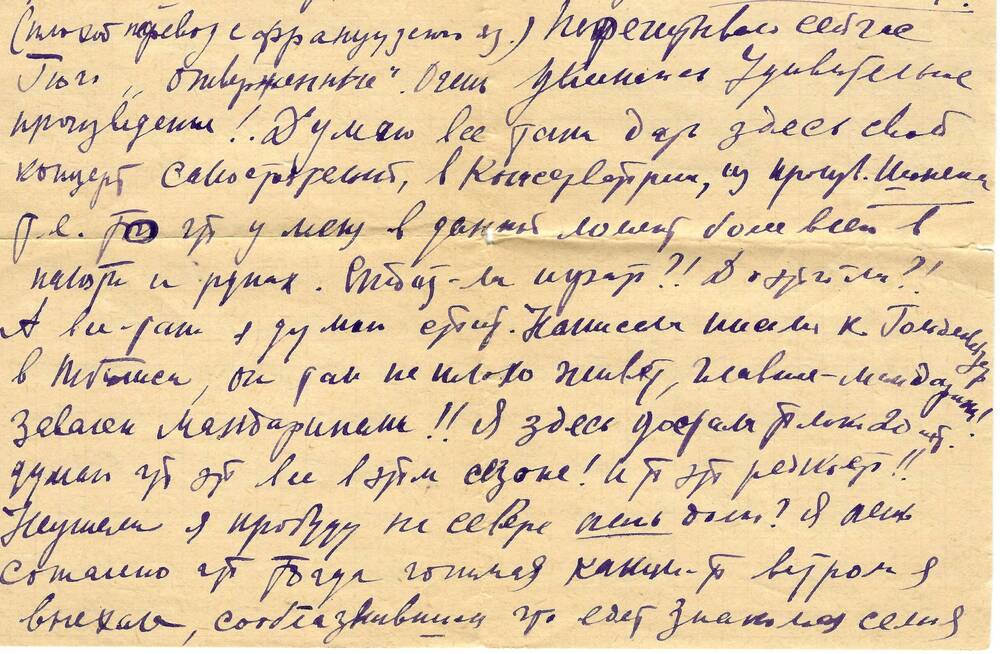 (плохой перевод с французского яз.) Перечитываю сейчас
Гюго „Отверженные". Очень увлекаюсь Удивительное
произведение! Думаю все таки дать здесь свой
концерт самостоятельный, в Консерватории, из произв. Шопена
т.е. то что у меня в данный момент более всего в
памяти и руках. Стоит-ли играть?!
А все-таки я думаю стоит. Написала письмо к Гольденвейзеру
в Тбилиси, он там не плохо живет, главное-мандарины!
завален мандаринами!! Я здесь достала только 20 шт.
думаю что это все в этом сезоне! и то это редкость!!
Неужели я пробуду на севере очень долго? Я очень
сожалею что тогда гонимая каким-то ветром я
выехала, соблазнившись что едет знакомая семья